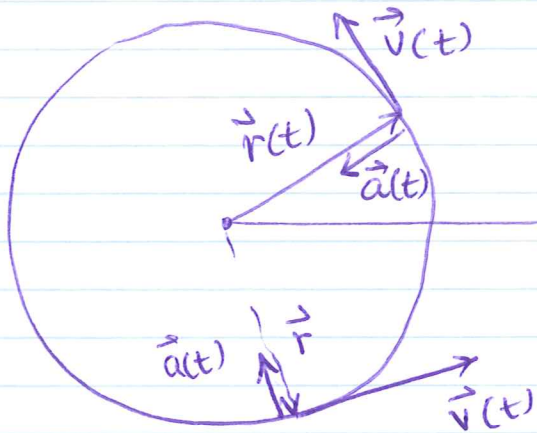 v⃗(t)
r⃗(t)
a⃗(t)
a⃗(t)
r⃗
v⃗(t)